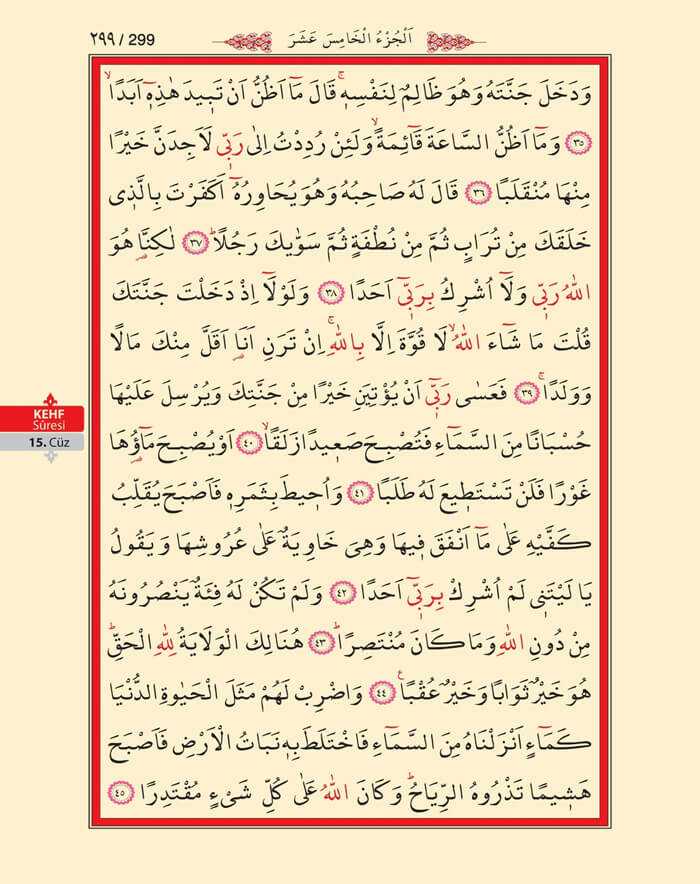 ٢٩٩ / 299
اَلْجُزْءُ الْخَامِسَ عَشَرَ
وَدَخَلَ جَنَّتَهُ وَهُوَ ظَالِمٌ لِنَفْسِه۪ۚ قَالَ مَٓا اَظُنُّ اَنْ تَب۪يدَ هٰذِه۪ٓ اَبَدًاۙ
﴿٣٥﴾ وَمَٓا اَظُنُّ السَّاعَةَ قَٓائِمَةًۙ وَلَئِنْ رُدِدْتُ اِلٰى رَبّ۪ي لَاَجِدَنَّ خَيْرًا
مِنْهَا مُنْقَلَبًا ﴿٣٦﴾ قَالَ لَهُ صَاحِبُهُ وَهُوَ يُحَاوِرُهُٓ اَكَفَرْتَ بِالَّذ۪ي
خَلَقَكَ مِنْ تُرَابٍ ثُمَّ مِنْ نُطْفَةٍ ثُمَّ سَوّٰيكَ رَجُلًاۜ ﴿٣٧﴾ لٰكِنَّا۬ هُوَ
اللّٰهُ رَبّ۪ي وَلَٓا اُشْرِكُ بِرَبّ۪ٓي اَحَدًا ﴿٣٨﴾ وَلَوْلَٓا اِذْ دَخَلْتَ جَنَّتَكَ
قُلْتَ مَا شَٓاءَ اللّٰهُۙ لَا قُوَّةَ اِلَّا بِاللّٰهِۚ اِنْ تَرَنِ اَنَا۬ اَقَلَّ مِنْكَ مَالًا
وَوَلَدًاۚ ﴿٣٩﴾ فَعَسٰى رَبّ۪ٓي اَنْ يُؤْتِيَنِ خَيْرًا مِنْ جَنَّتِكَ وَيُرْسِلَ عَلَيْهَا
حُسْبَانًا مِنَ السَّمَٓاءِ فَتُصْبِحَ صَع۪يدًا زَلَقًاۙ ﴿٤٠﴾ اَوْ يُصْبِحَ مَٓاؤُ۬هَا
غَوْرًا فَلَنْ تَسْتَط۪يعَ لَهُ طَلَبًا ﴿٤١﴾ وَاُح۪يطَ بِثَمَرِه۪ فَاَصْبَحَ يُقَلِّبُ
كَفَّيْهِ عَلٰى مَٓا اَنْفَقَ ف۪يهَا وَهِيَ خَاوِيَةٌ عَلٰى عُرُوشِهَا وَيَقُولُ
يَا لَيْتَن۪ي لَمْ اُشْرِكْ بِرَبّ۪ٓي اَحَدًا ﴿٤٢﴾ وَلَمْ تَكُنْ لَهُ فِئَةٌ يَنْصُرُونَهُ
مِنْ دُونِ اللّٰهِ وَمَا كَانَ مُنْتَصِرًاۜ ﴿٤٣﴾ هُنَالِكَ الْوَلَايَةُ لِلّٰهِ الْحَقِّۜ
هُوَ خَيْرٌ ثَوَابًا وَخَيْرٌ عُقْبًا۟ ﴿٤٤﴾ وَاضْرِبْ لَهُمْ مَثَلَ الْحَيٰوةِ الدُّنْيَا
كَمَٓاءٍ اَنْزَلْنَاهُ مِنَ السَّمَٓاءِ فَاخْتَلَطَ بِه۪ نَبَاتُ الْاَرْضِ فَاَصْبَحَ
هَش۪يمًا تَذْرُوهُ الرِّيَاحُۜ وَكَانَ اللّٰهُ عَلٰى كُلِّ شَيْءٍ مُقْتَدِرًا ﴿٤٥﴾
KEHF
Sûresi
15. Cüz